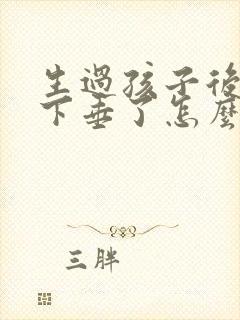 生過孩子後
下垂了怎麼
三胖